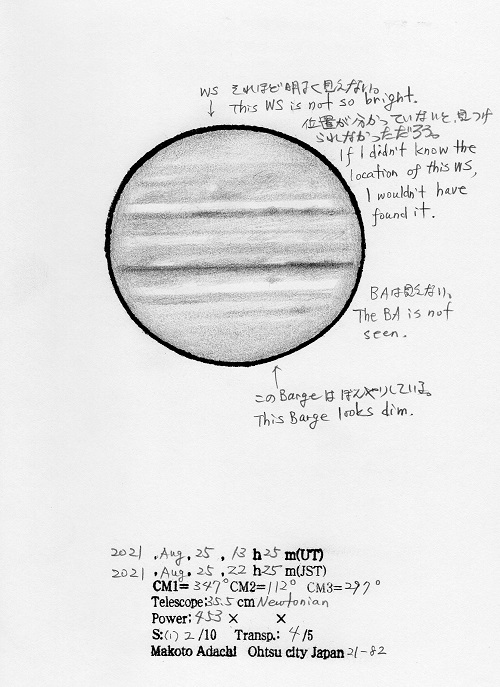 WS それほど明るく見えない。
↓ This WS is not so bright.
位置が分かっていないと、見つけ
られなかっただろう。
If I didn't know the
location of this WS,
I wouldn't have
found it.
BAは見えない。
The BA is not
seen.
↑
このBargeはぼんやりしている。
This Barge looks dim.
2021 , Aug, 25 , 13 h 25 m(UT)
2021 , Aug, 25 , 22 h 25 m(JST)
CM1= 347° CM2=112° CM3=297°
Telescope:35.5 cm Newtonian
Power: 453 × ×
S:(1) 2 /10 Transp.: 4 /5
Makoto Adachi Ohtsu city Japan 21-82